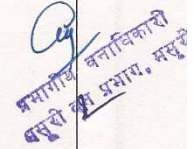 प्रभागीय वनाधिकारी
मसूरी वन प्रभाग, मसूरी